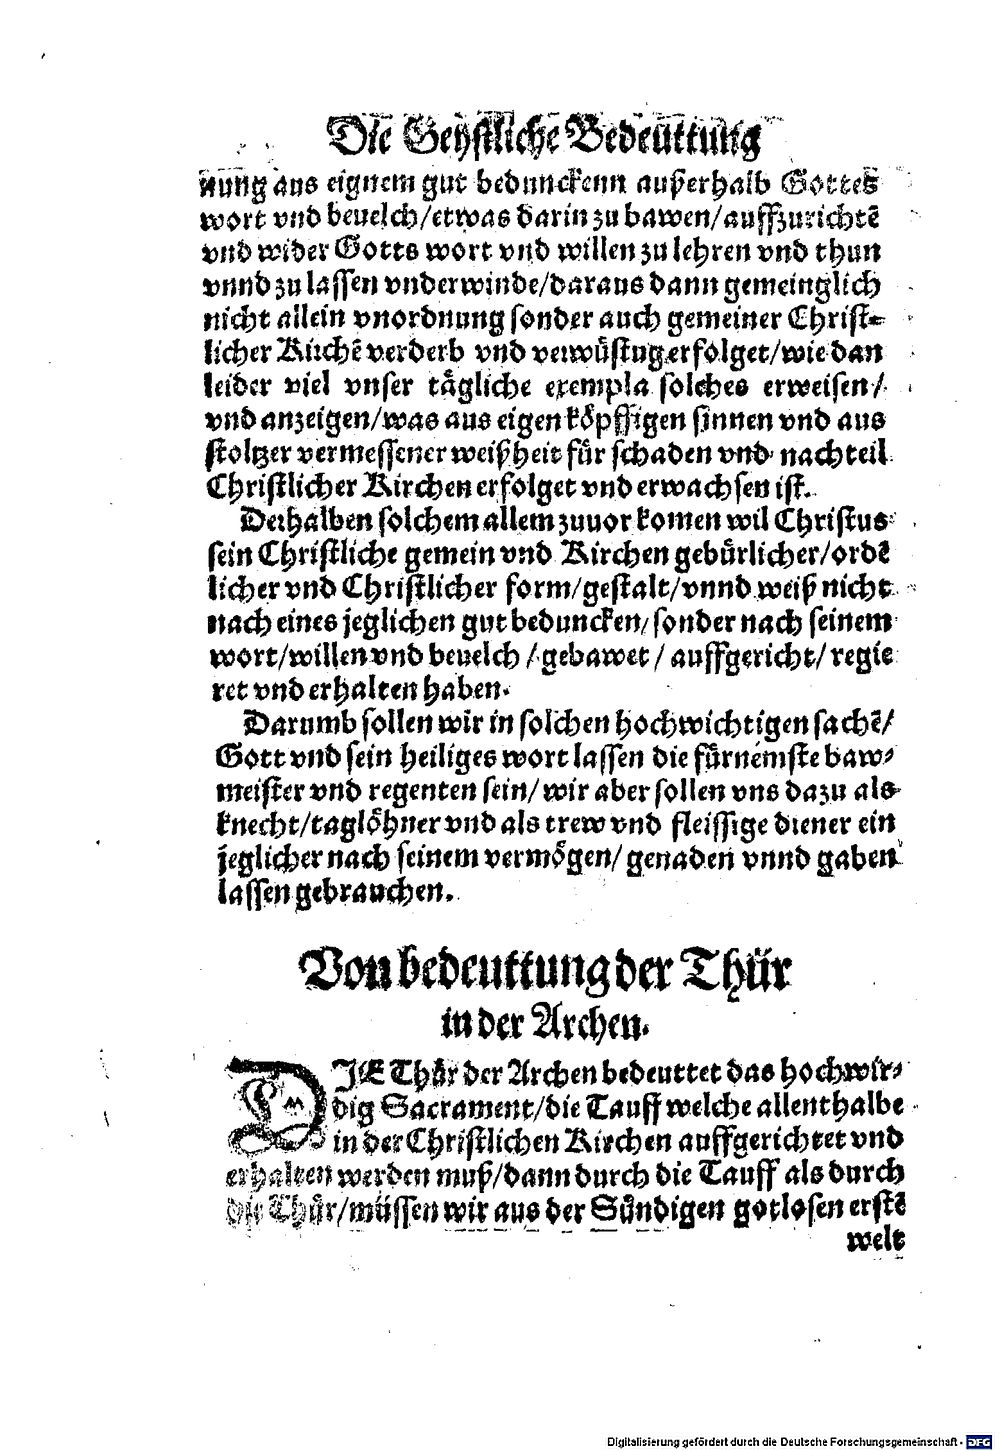 Die Geystliche Bedeüttung
nung aus eignem gut bedunckenn außerhalb Gottes
wort vnd beuelch/etwas darin zu bawen/auffzurichtē
vnd wider Gotts wort vnd willen zu lehren vnd thun
vnnd zu lassen vnderwinde/daraus dann gemeinglich
nicht allein vnordnung sonder auch gemeiner Christ-
licher Kirchē verderb vnd verwüstug erfolget/wie dan
leider viel vnser tägliche exempla solches erweisen/
vnd anzeigen/was aus eigen köpffigen sinnen vnd aus
stoltzer vermessener weißheit für schaden vnd nachteil
Christlicher Kirchen erfolget vnd erwachsen ist.
Derhalben solchem allem zuuor komen wil Christus
sein Christliche gemein vnd Kirchen gebürlicher/ordē
licher vnd Christlicher form/gestalt/vnnd weiß nicht
nach eines jeglichen gut beduncken/sonder nach seinem
wort/willen vnd beuelch/gebawet/auffgericht/regie
ret vnd erhalten haben.
Darumb sollen wir in solchen hochwichtigen sachē/
Gott vnd sein heiliges wort lassen die fürnemste baw-
meister vnd regenten sein/wir aber sollen vns dazu als
knecht/taglöhner vnd als trew vnd fleissige diener ein
jeglicher nach seinem vermögen/genaden vnnd gaben
lassen gebrauchen.
Von bedeuttung der Thür
in der Archen.
DIE Thür der Archen bedeuttet das hochwir-
dig Sacrament/die Tauff welche allenthalbe
in der Christlichen Kirchen auffgerichtet vnd
erhalten werden muß/dann durch die Tauff als durch
die Thür/müssen wir aus der Sündigen gotlosen erstē
welt
Digitalisierung gefördert durch die Deutsche Forschungsgemeinschaft - DFG